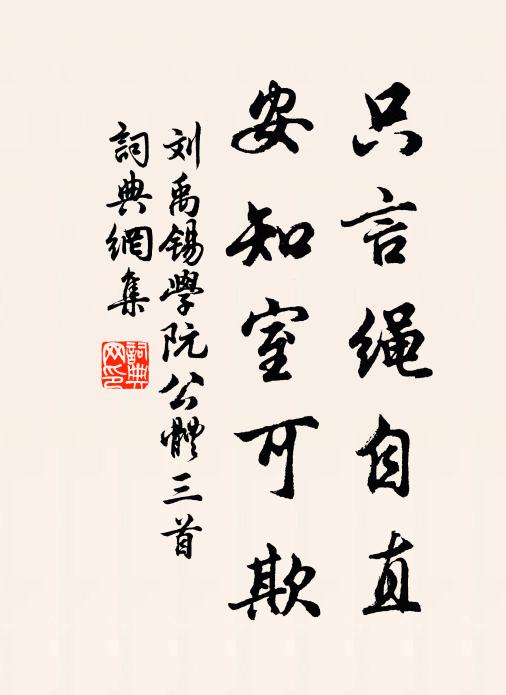 只言绳自直
安知室可欺
刘禹锡學阮公體三首
詞典網集
詞典網印